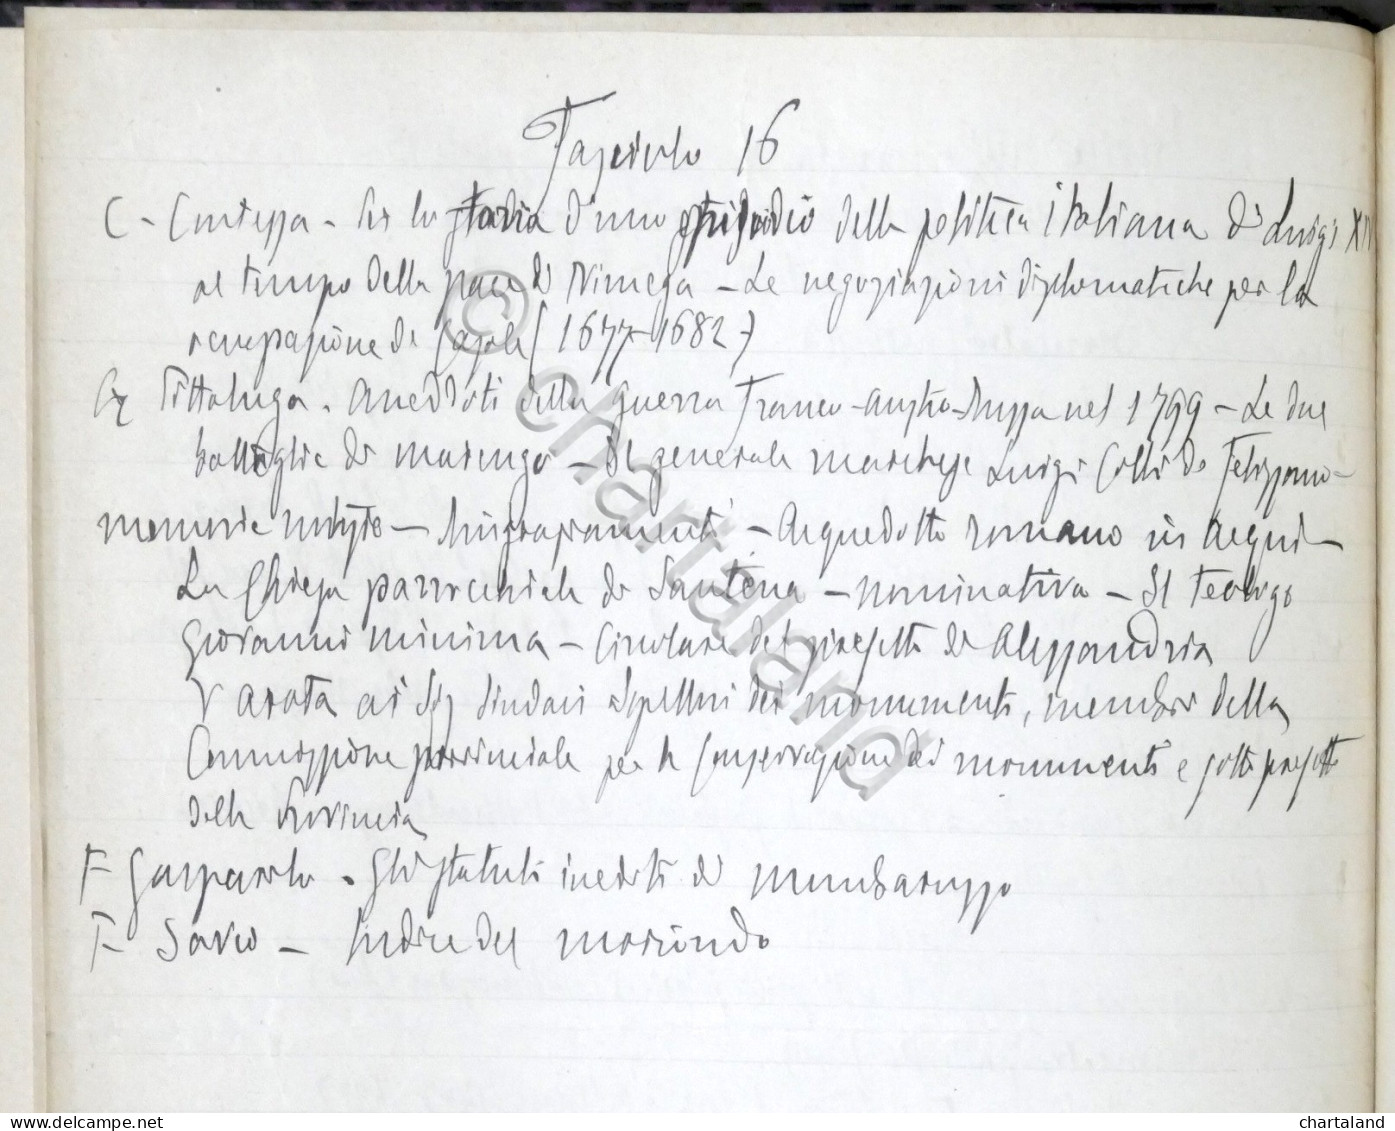 Fascicolo 16
C - Contessa - Per la storia d'uno episodio della politica italiana di Luigi XIV
al tempo della pace di Nimega - Le negoziazioni diplomatiche per la
occupazione di Casale (1677-1682)
G Pittaluga. Aneddoti della guerra Franco-austro-Russa nel 1799 - Le due
battaglie di marengo - Il generale marchese Luigi Colli di Felizzano -
memorie - Ringraziamenti - Acquedotto romano in Acqui -
La Chiesa parrocchiale di Santena - nominativa - Il teologo
Giovanni minima - Circolare del prefetto di Alessandria
V Arata ai Sig Sindaci Ispettori dei monumenti, membri della
Commissione provinciale per la Conservazione dei monumenti e sotto prefetti
della Provincia
F Gasparolo - Gli statuti inediti di mombaruzzo
F Savio - Indice del moriondo
© chartaland
delcampe.net
chartaland